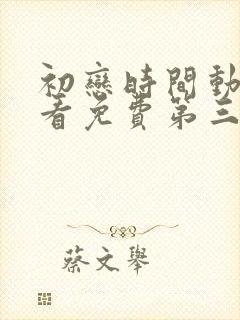 初戀時間動
看免費第三
蔡文舉